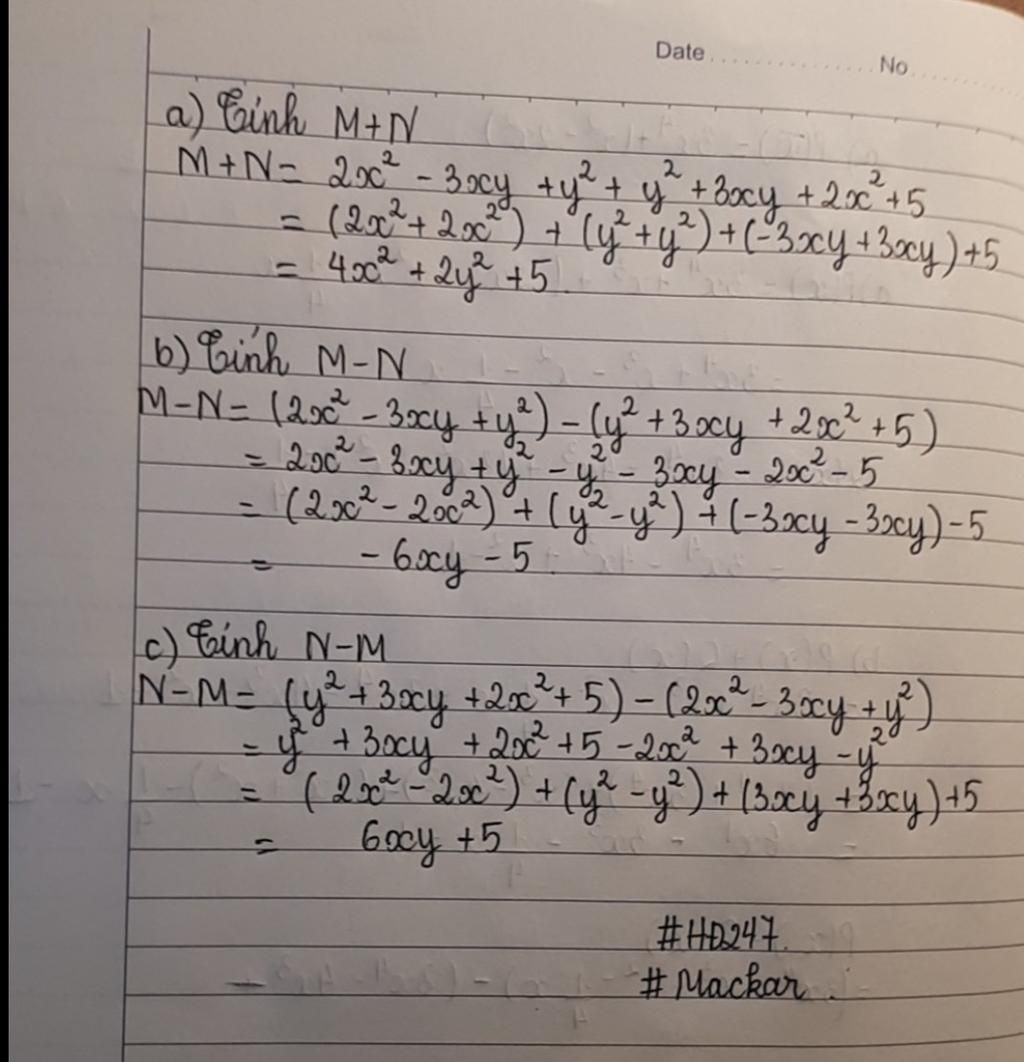 Date.................No.........
a) Tính M+N
M+N= 2x² - 3xy + y² + y² + 3xy + 2x² + 5
= (2x² + 2x²) + (y² + y²) + (-3xy + 3xy) + 5
= 4x² + 2y² + 5.
b) Tính M-N
M-N= (2x² - 3xy + y²) - (y² + 3xy + 2x² + 5)
= 2x² - 3xy + y² - y² - 3xy - 2x² - 5
= (2x² - 2x²) + (y² - y²) + (-3xy - 3xy) - 5
= -6xy - 5.
c) Tính N-M
N-M= (y² + 3xy + 2x² + 5) - (2x² - 3xy + y²)
= y² + 3xy + 2x² + 5 - 2x² + 3xy - y²
= (2x² - 2x²) + (y² - y²) + (3xy + 3xy) + 5
= 6xy + 5
#HD247.
#Mackar.